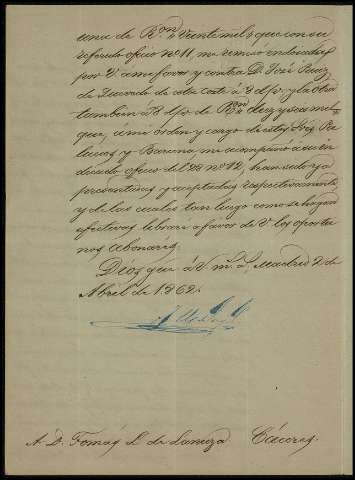 una de Ron. Veinte mil, que con su
referido oficio nº 11, me remitió endosadas
por V. a mi favor y contra D. José Ruiz
de Quevedo de esta corte á 8 d/v. y la otra
tambien á 8 d/v. de Ron. diez y seis mil
que, a mi orden y cargo de estos Sres.
y me acompañó á su in-
dicado oficio del 28 nº 12, han sido ya
presentadas y aceptadas respectivamente
y de las cuales tan luego como se hagan
efectivas librare á favor de V. los oportu-
nos abonarés.
Dios gue á V. ms. as. Madrid 2 de
Abril de 1862.
A. D. Tomás L. de Lanuza. Cáceres.